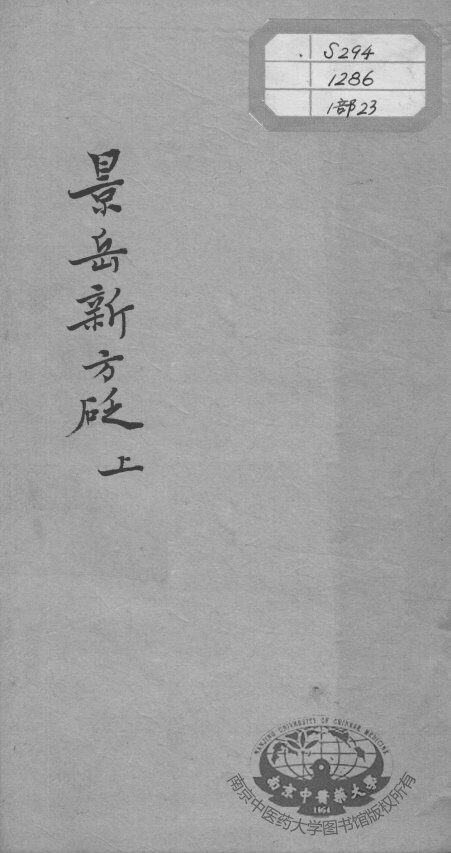 S294
1286
1部23
景岳新方砭 上
NANJING UNIVERSITY OF CHINESE MEDICINE
南京中醫藥大學
1954
南京中医药大学图书馆版权所有